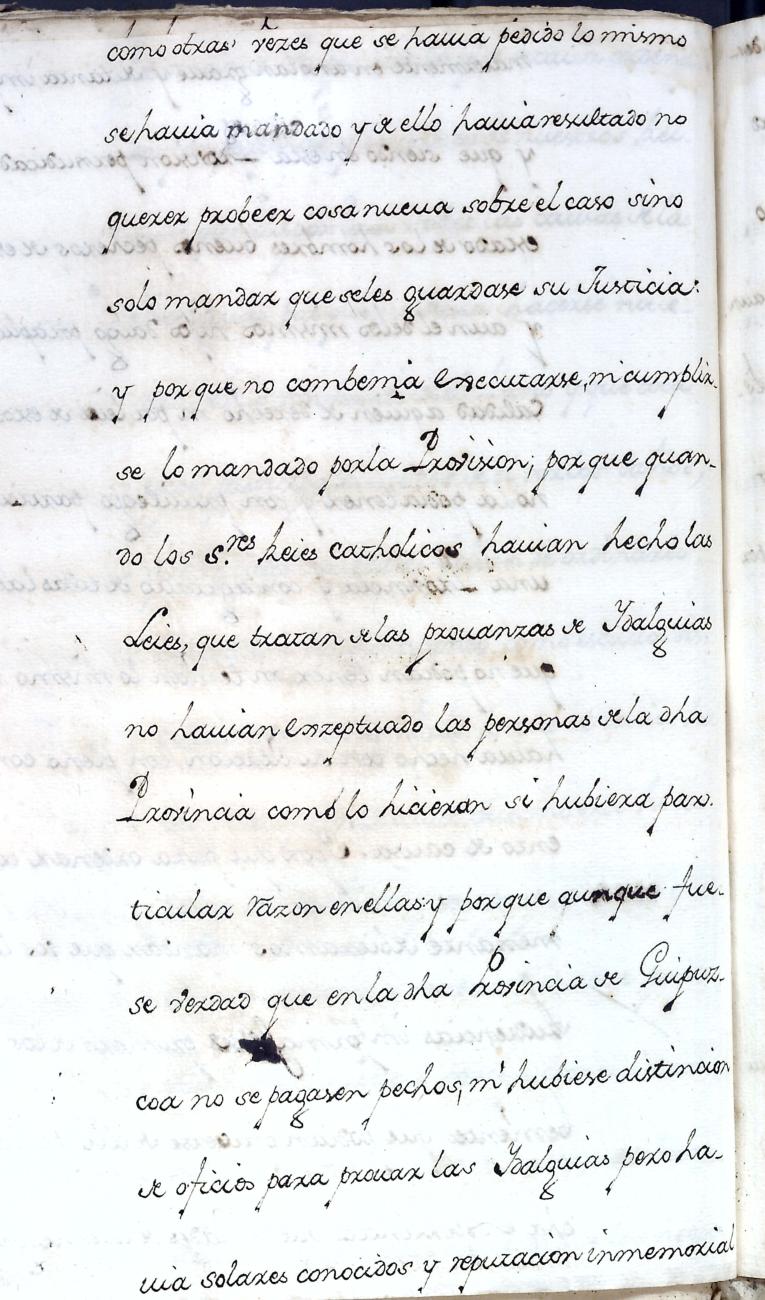 como otras vezes que se hauia pedido lo mismo
se hauia mandado y de ello hauia resultado no
querer probeer cosa nueua sobre el caso sino
solo mandar que seles guardase su Justicia:
y porque no combenia Executarse, ni cumplir-
se lo mandado por la Provision; porque quan-
do los S.res Reies catholicos hauian hecho las
Leies, que tratan de las prouanzas de Ydalguias
no hauian Enzeptuado las personas de la dha
Provincia como lo hicieran si hubiera par-
ticular razon en ellas y porque aunque fue-
se verdad que en la dha Provincia de Guipuz-
coa no se pagasen pechos, ni hubiese distincion
de oficios para prouar las Ydalguias pero ha-
uia solares conocidos y reputacion inmemorial